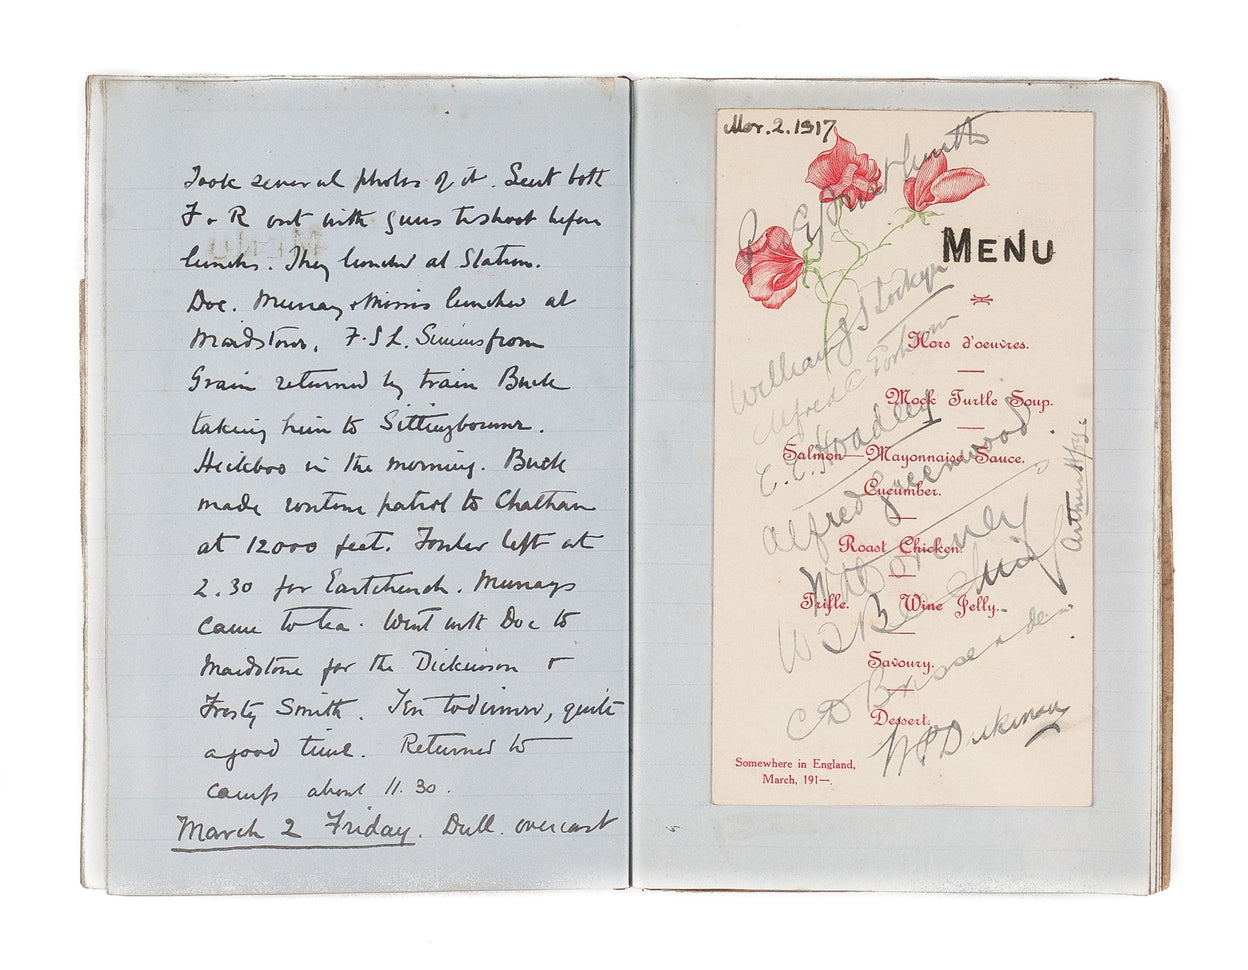 Took several photos of it. Sent both
F & R out with guns to shoot before
lunch. They lunched at Station.
Doc. Murray & Minns lunched at
Maidstone. F.S.L. from
Grain returned by train Buck
taking him to Sittingbourne.
in the morning. Buck
made routine patrol to Chatham
at 12000 feet. Fowler left at
2.30 for Eastchurch. Murrays
came to tea. Went with Doc to
Maidstone for the Dickinson &
Frosty Smith. Ten to dinner, quite
a good time. Returned to
camp about 11.30.
March 2 Friday. Dull. overcast
Mar. 2. 1917
MENU
Hors d'oeuvres.
Mock Turtle Soup.
Salmon—Mayonnaise Sauce.
Cucumber.
Roast Chicken.
Trifle. Wine Jelly.
Savoury.
Dessert.
Somewhere in England,
March, 191—.
William J S Lockyer
Alfred C
E. E. Hoadley
Alfred Greenwood
C D
Arthur